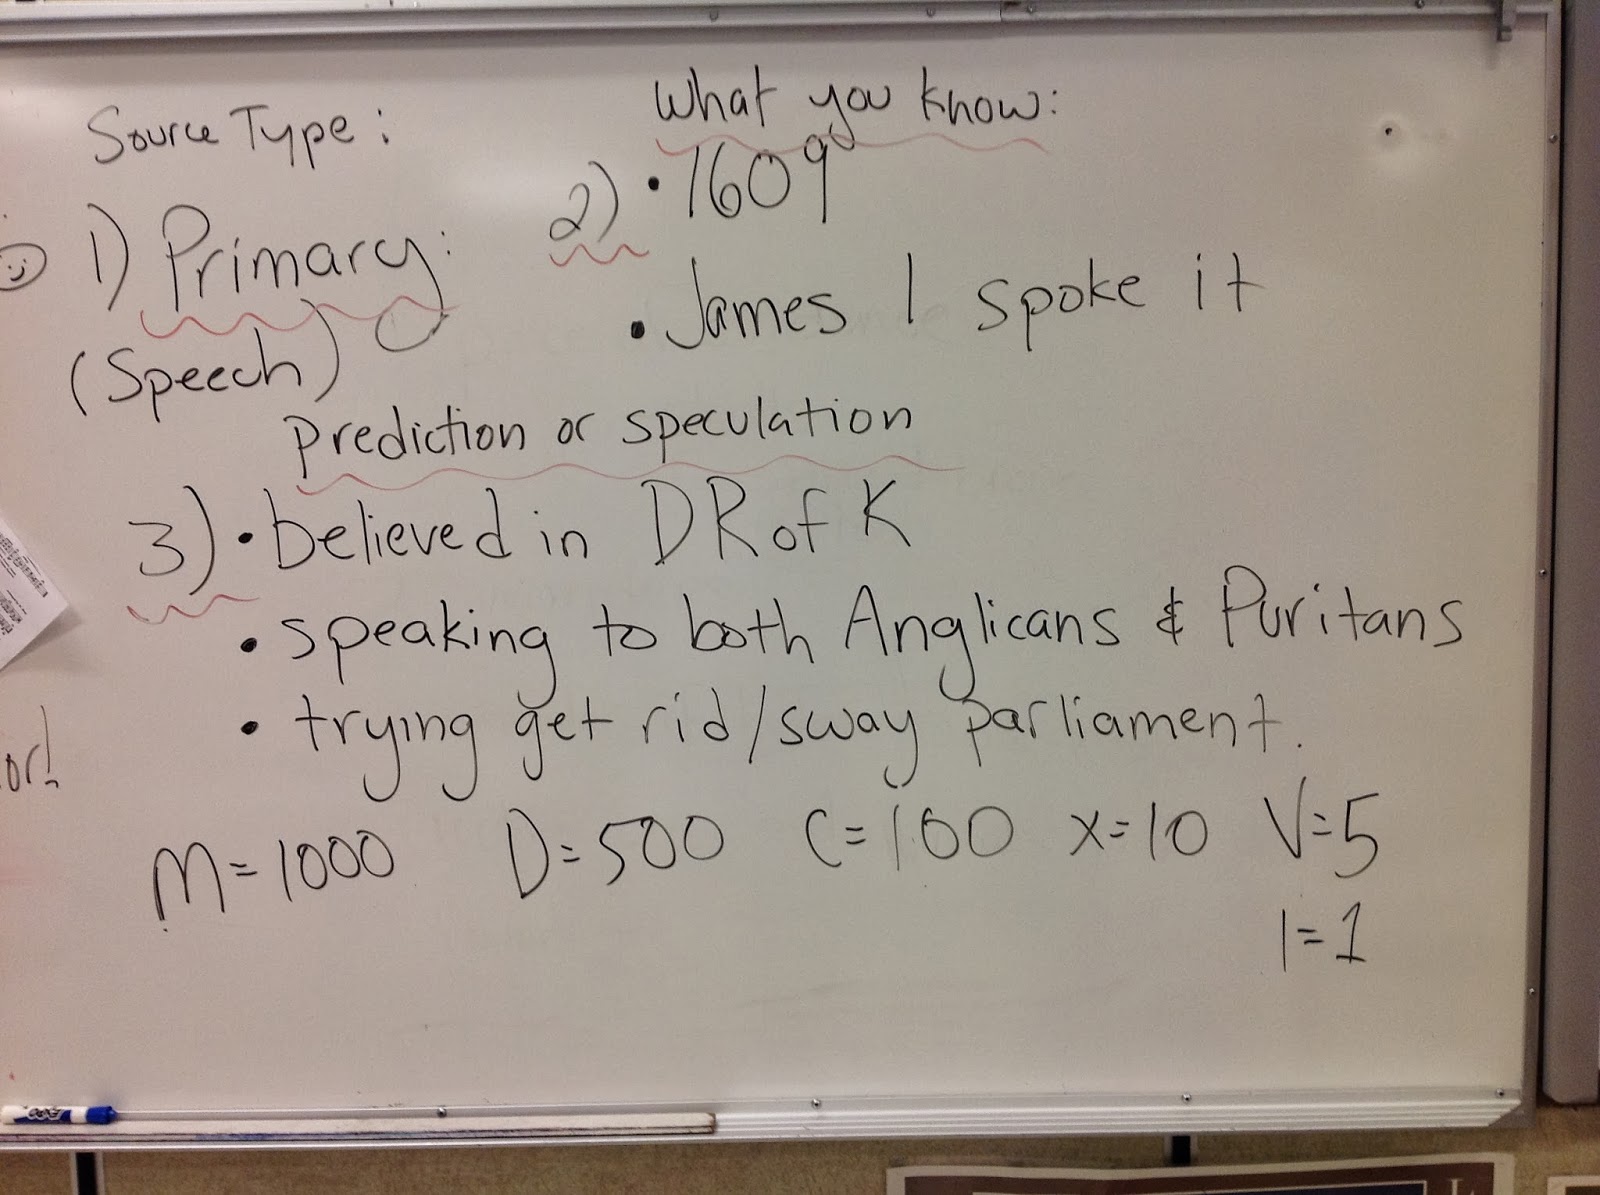 Source Type:
What you know:
1) Primary:
(Speech)
2) • 1609
• James I spoke it
prediction or speculation
3) • believed in DR of K
• speaking to both Anglicans & Puritans
• trying get rid/sway parliament.
M=1000 D=500 C=100 X=10 V=5
I=1
or!
EXPO